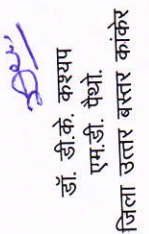 डॉ. डी.के. कश्यप
एम.डी. पैथो.
जिला उत्तर बस्तर कांकेर